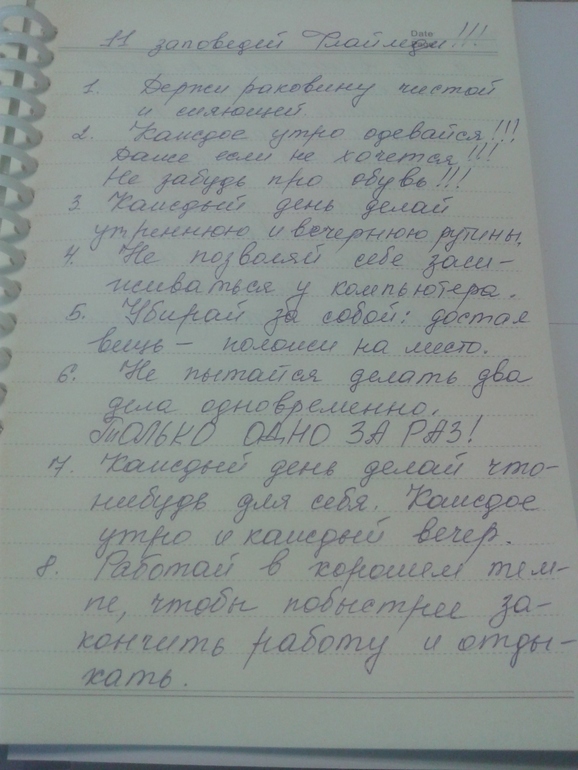 Date
11 заповедей Флайледи!!!
1. Держи раковину чистой
и сияющей
2. Каждое утро одевайся!!!
Даже если не хочется!!!
Не забудь про обувь!!!
3. Каждый день делай
утреннюю и вечернюю рутины.
4. Не позволяй себе заси-
живаться у компьютера.
5. Убирай за собой: достал
вещь – положи на место.
6. Не пытайся делать два
дела одновременно.
ТОЛЬКО ОДНО ЗА РАЗ!
7. Каждый день делай что-
нибудь для себя. Каждое
утро и каждый вечер.
8. Работай в хорошем тем-
пе, чтобы побыстрее за-
кончить работу и отды-
хать.